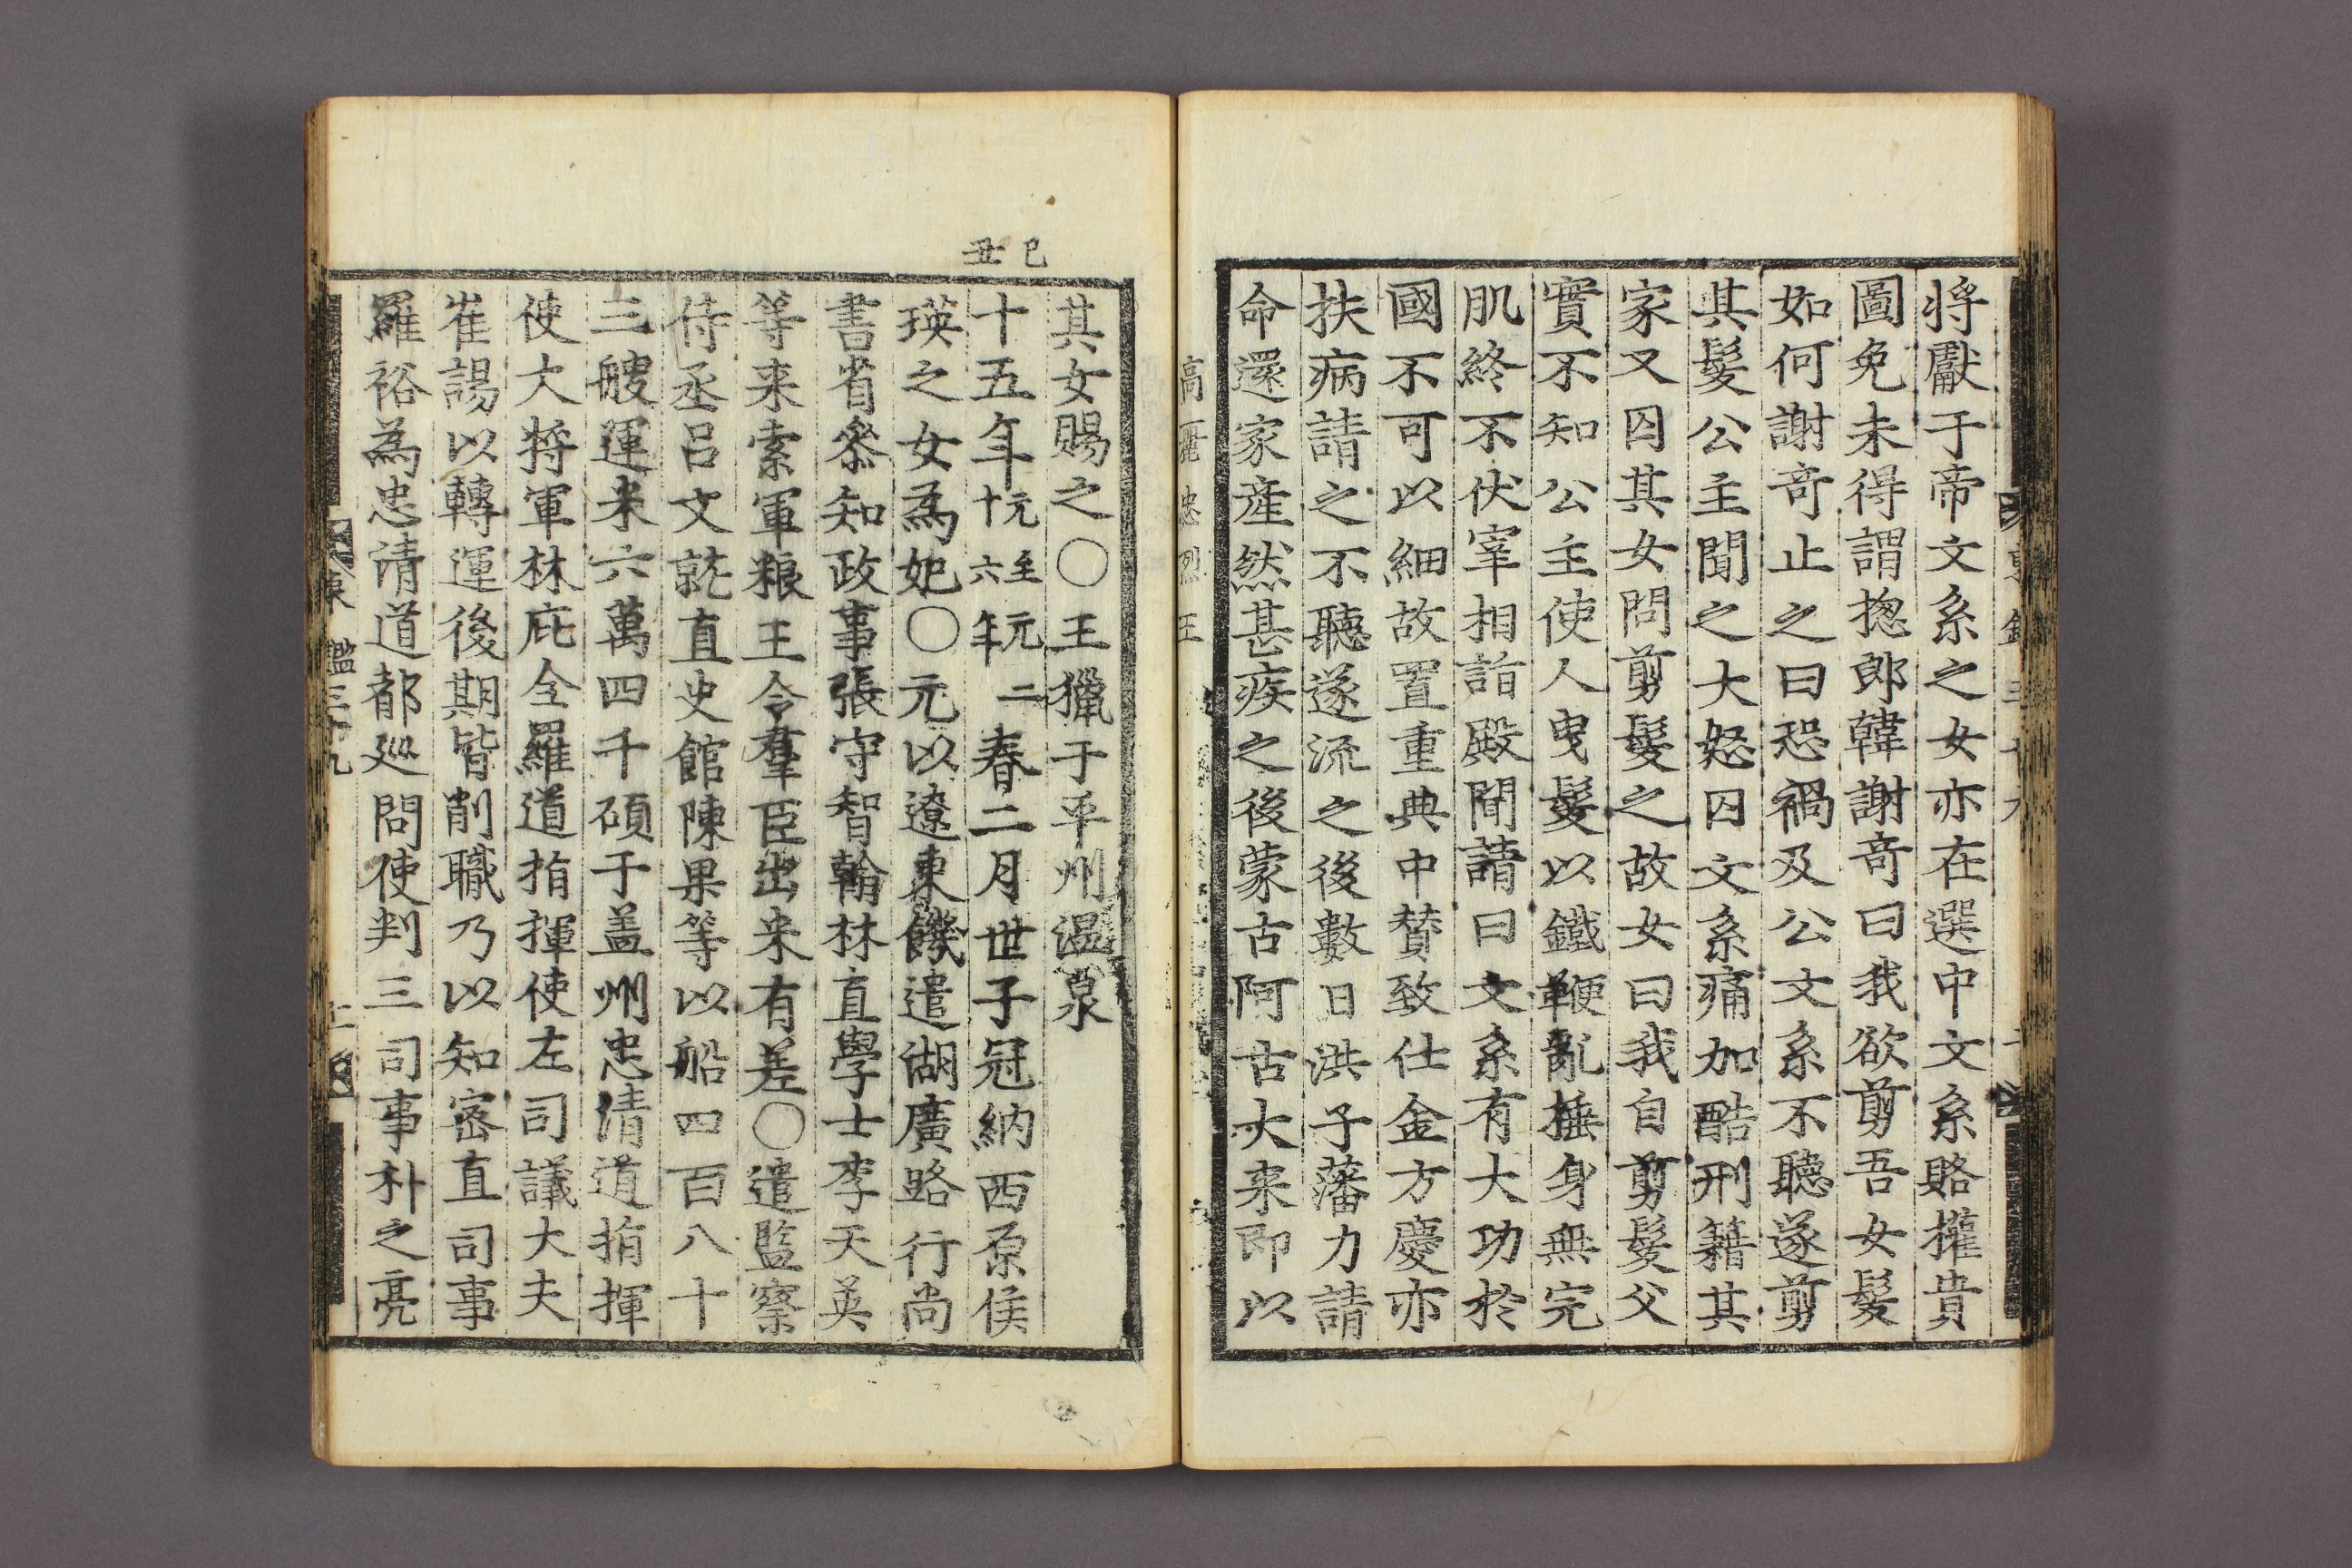 将獻于帝文系之女亦在選中文系賂權貴
圖免未得謂揔郎韓謝竒曰我欲剪吾女髮
如何謝竒止之曰恐禍及公文系不聽遂剪
其髮公主聞之大怒囚文系痛加酷刑籍其
家又囚其女問剪髮之故女曰我自剪髮父
實不知公主使人曳髮以鐵鞭亂捶身無完
肌終不伏宰相詣殿閒請曰文系有大功於
國不可以細故置重典中贊致仕金方慶亦
扶病請之不聽遂流之後數日洪子藩力請
命還家産然甚疾之後蒙古阿古大来即以
高麗 忠烈王
己丑
其女賜之〇王獵于平州温泉
十五年元至元二十六年春二月世子冠納西原侯
瑛之女為妃〇元以遼東饑遣湖廣路行尚
書省叅知政事張守智翰林直學士李天英
等来索軍粮王令羣臣出米有差〇遣監察
侍丞呂文就直史館陳果等以船四百八十
三艘運米六萬四千碩于盖州忠清道指揮
使大將軍林庇全羅道指揮使左司議大夫
崔諹以轉運後期皆削職乃以知密直司事
羅裕為忠清道都廵問使判三司事朴之亮